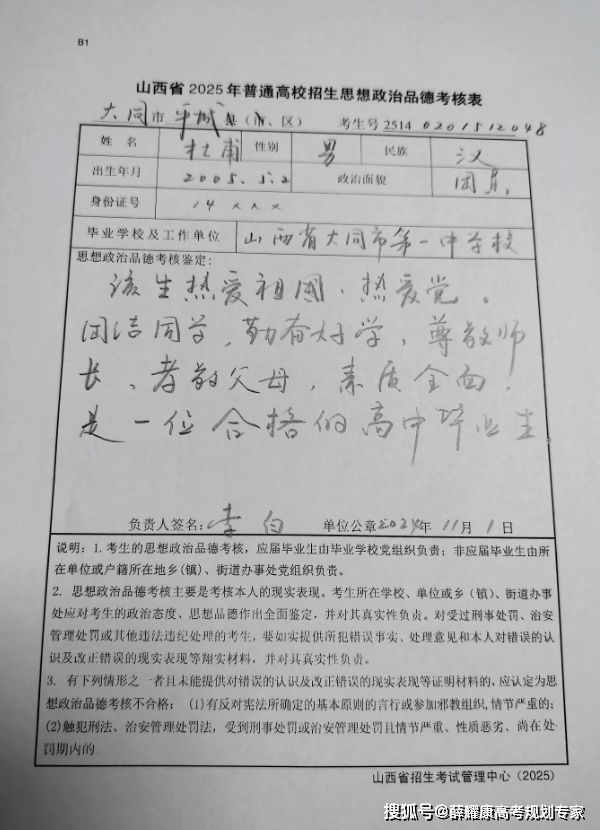 B1
山西省2025年普通高校招生思想政治品德考核表
大同市 平城县(市、区) 考生号 2514 0201512048
姓名 杜甫 性别 男 民族 汉
出生年月 2005.5.2 政治面貌 团员
身份证号 14xxx
毕业学校及工作单位 山西省大同市第一中学校
思想政治品德考核鉴定:
该生热爱祖国、热爱党。
团洁同学,勤奋好学、尊敬师
长、孝敬父母,素质全面,
是一位合格的高中毕业生
负责人签名: 李白 单位公章 2024年 11月 1日
说明:1.考生的思想政治品德考核,应届毕业生由毕业学校党组织负责;非应届毕业生由所
在单位或户籍所在地乡(镇)、街道办事处党组织负责。
2. 思想政治品德考核主要是考核本人的现实表现。考生所在学校、单位或乡(镇)、街道办事
处应对考生的政治态度、思想品德作出全面鉴定,并对其真实性负责。对受过刑事处罚、治安
管理处罚或其他违法违纪处理的考生,要如实提供所犯错误事实、处理意见和本人对错误的认
识及改正错误的现实表现等翔实材料,并对其真实性负责。
3. 有下列情形之一者且未能提供对错误的认识及改正错误的现实表现等证明材料的,应认定为思
想政治品德考核不合格:(1)有反对宪法所确定的基本原则的言行或参加邪教组织,情节严重的;
(2)触犯刑法、治安管理处罚法,受到刑事处罚或治安管理处罚且情节严重、性质恶劣、尚在处
罚期内的
山西省招生考试管理中心(2025)
搜狐号@薛耀康高考规划专家